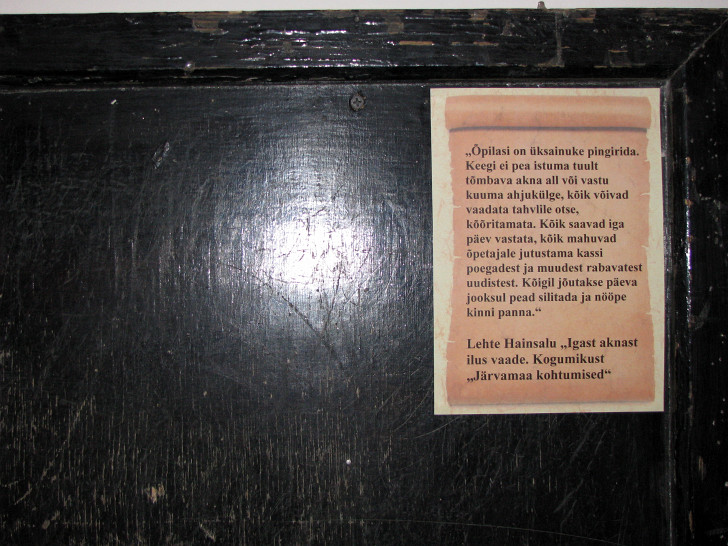 „Õpilasi on üksainuke pingirida.
Keegi ei pea istuma tuult
tõmbava akna all või vastu
kuuma ahjukülge, kõik võivad
vaadata tahvlile otse,
kõõritamata. Kõik saavad iga
päev vastata, kõik mahuvad
õpetajale jutustama kassi
poegadest ja muudest rabavatest
uudistest. Kõigil jõutakse päeva
jooksul pead silitada ja nööpe
kinni panna.“
Lehte Hainsalu „Igast aknast
ilus vaade. Kogumikust
„Järvamaa kohtumised“